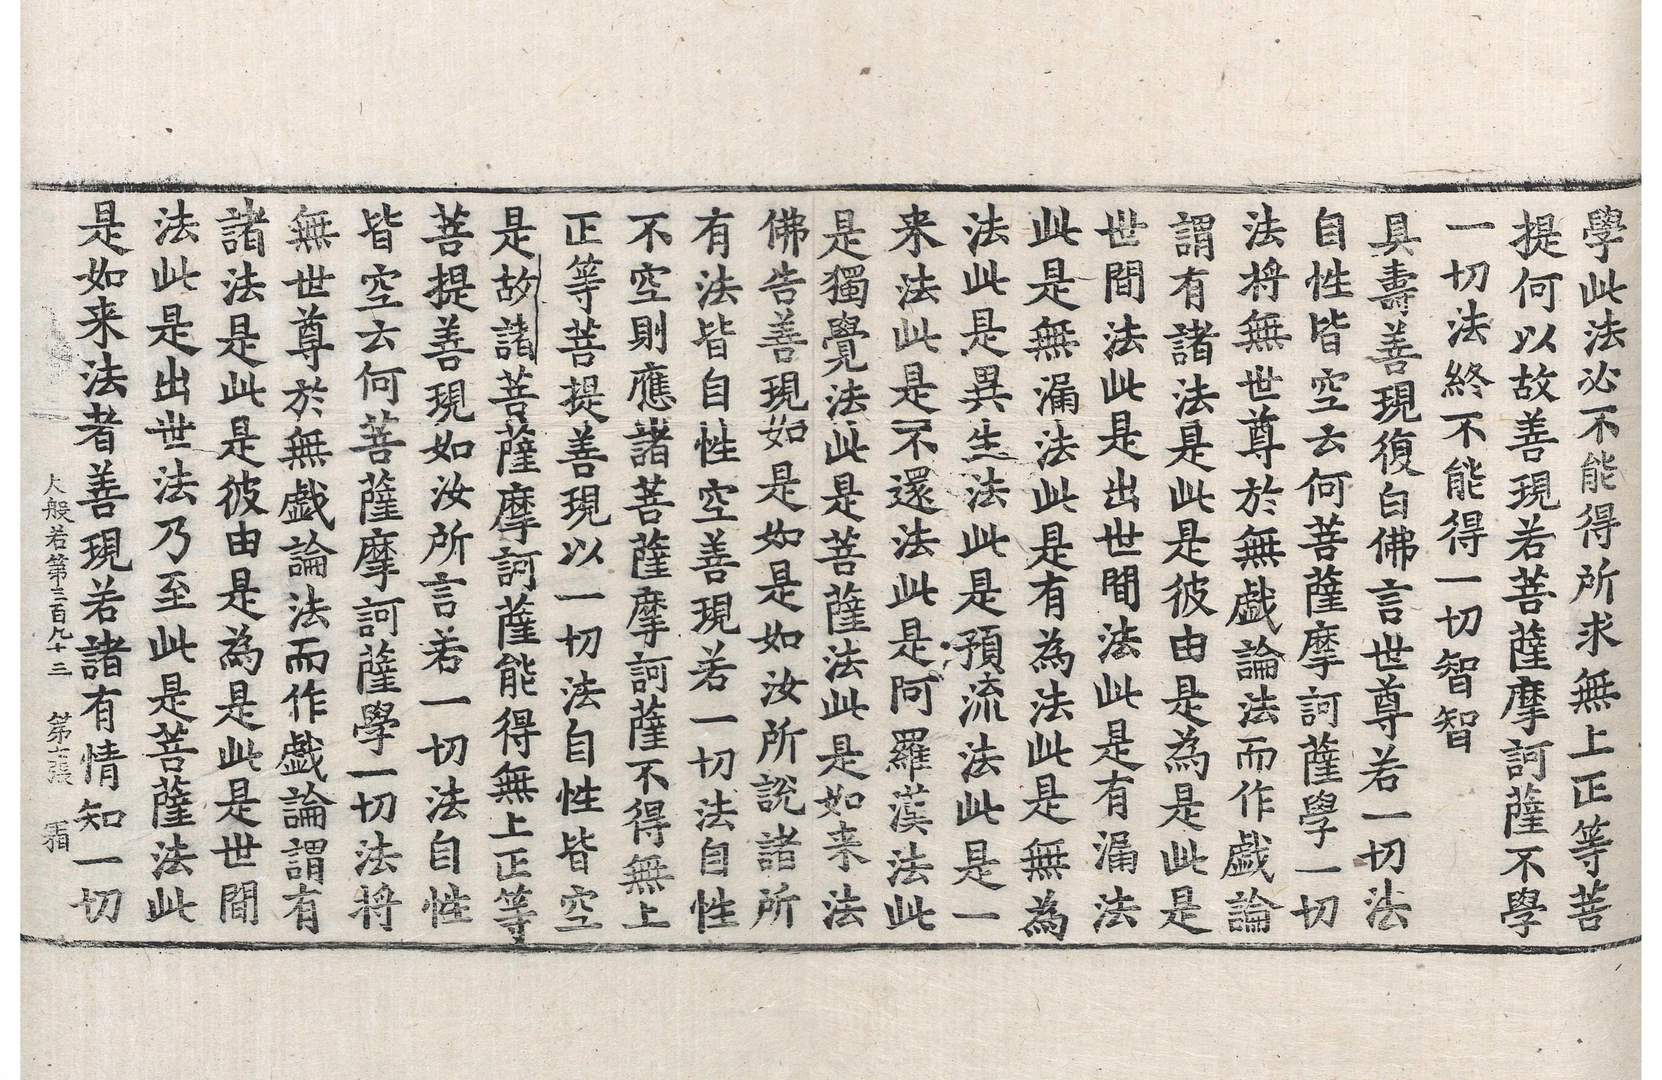 學此法必不能得所求無上正等菩
提何以故善現若菩薩摩訶薩不學
一切法終不能得一切智智
具壽善現復白佛言世尊若一切法
自性皆空云何菩薩摩訶薩學一切
法将無世尊於無戱論法而作戱論
謂有諸法是此是彼由是為是此是
世間法此是出世間法此是有漏法
此是無漏法此是有為法此是無為
法此是異生法此是預流法此是一
来法此是不還法此是阿羅漢法此
是獨覺法此是菩薩法此是如来法
佛告善現如是如是如汝所說諸所
有法皆自性空善現若一切法自性
不空則應諸菩薩摩訶薩不得無上
正等菩提善現以一切法自性皆空
是故諸菩薩摩訶薩能得無上正等
菩提善現如汝所言若一切法自性
皆空云何菩薩摩訶薩學一切法将
無世尊於無戱論法而作戱論謂有
諸法是此是彼由是為是此是世間
法此是出世法乃至此是菩薩法此
是如来法者善現若諸有情知一切
大般若第三百九十三 第七張 霜